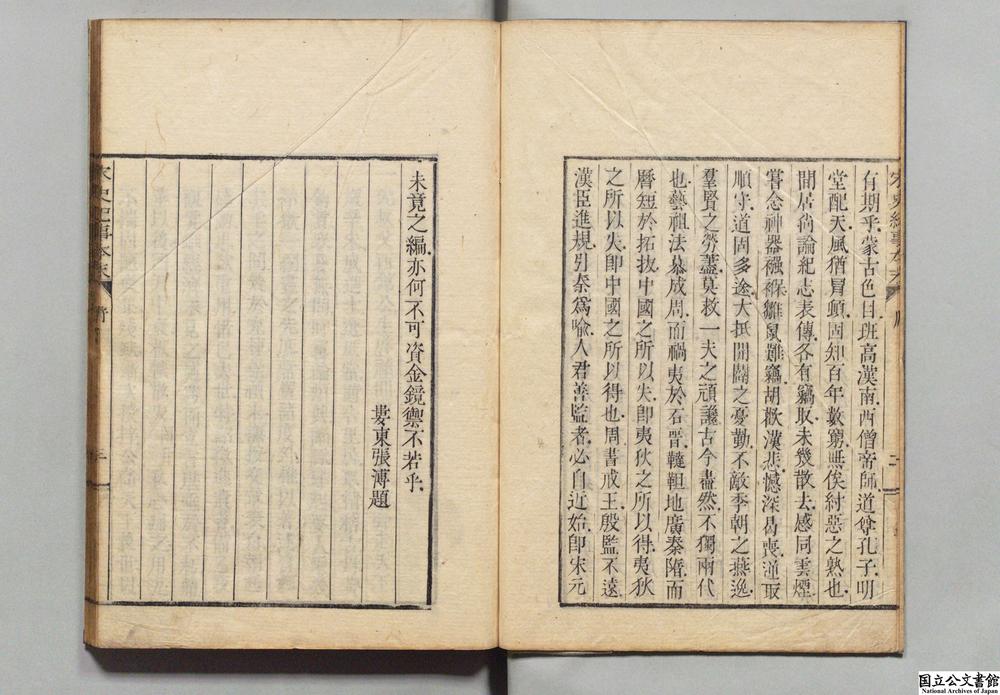 宋史紀事本末 序 二
有期乎蒙古色目班高漢南西僧帝師道尊孔子明
堂配天風猶冒頓固知百年數窮無俟紂惡之熟也
間居尚論紀志表傳各有竊取未幾散去感同雲煙
嘗念神器襁褓雛鼠難竊胡歡漢悲憾深曷喪逆取
順守道固多途大抵開闢之憂勤不敵季朝之燕逸
羣賢之勞藎莫救一夫之頑讒古今盡然不獨兩代
也藝祖法慕成周而禍夷於石晋韃靼地廣秦隋而
曆短於拓拔中國之所以失卽夷狄之所以得夷狄
之所以失卽中國之所以得也周書戒王殷監不遠
漢臣進規引秦爲喻人君善監者必自近始卽宋元
未竟之編亦何不可資金鏡禦不若乎
婁東張溥題
宋史紀事本末 序 三
国立公文書館
National Archives of Japan